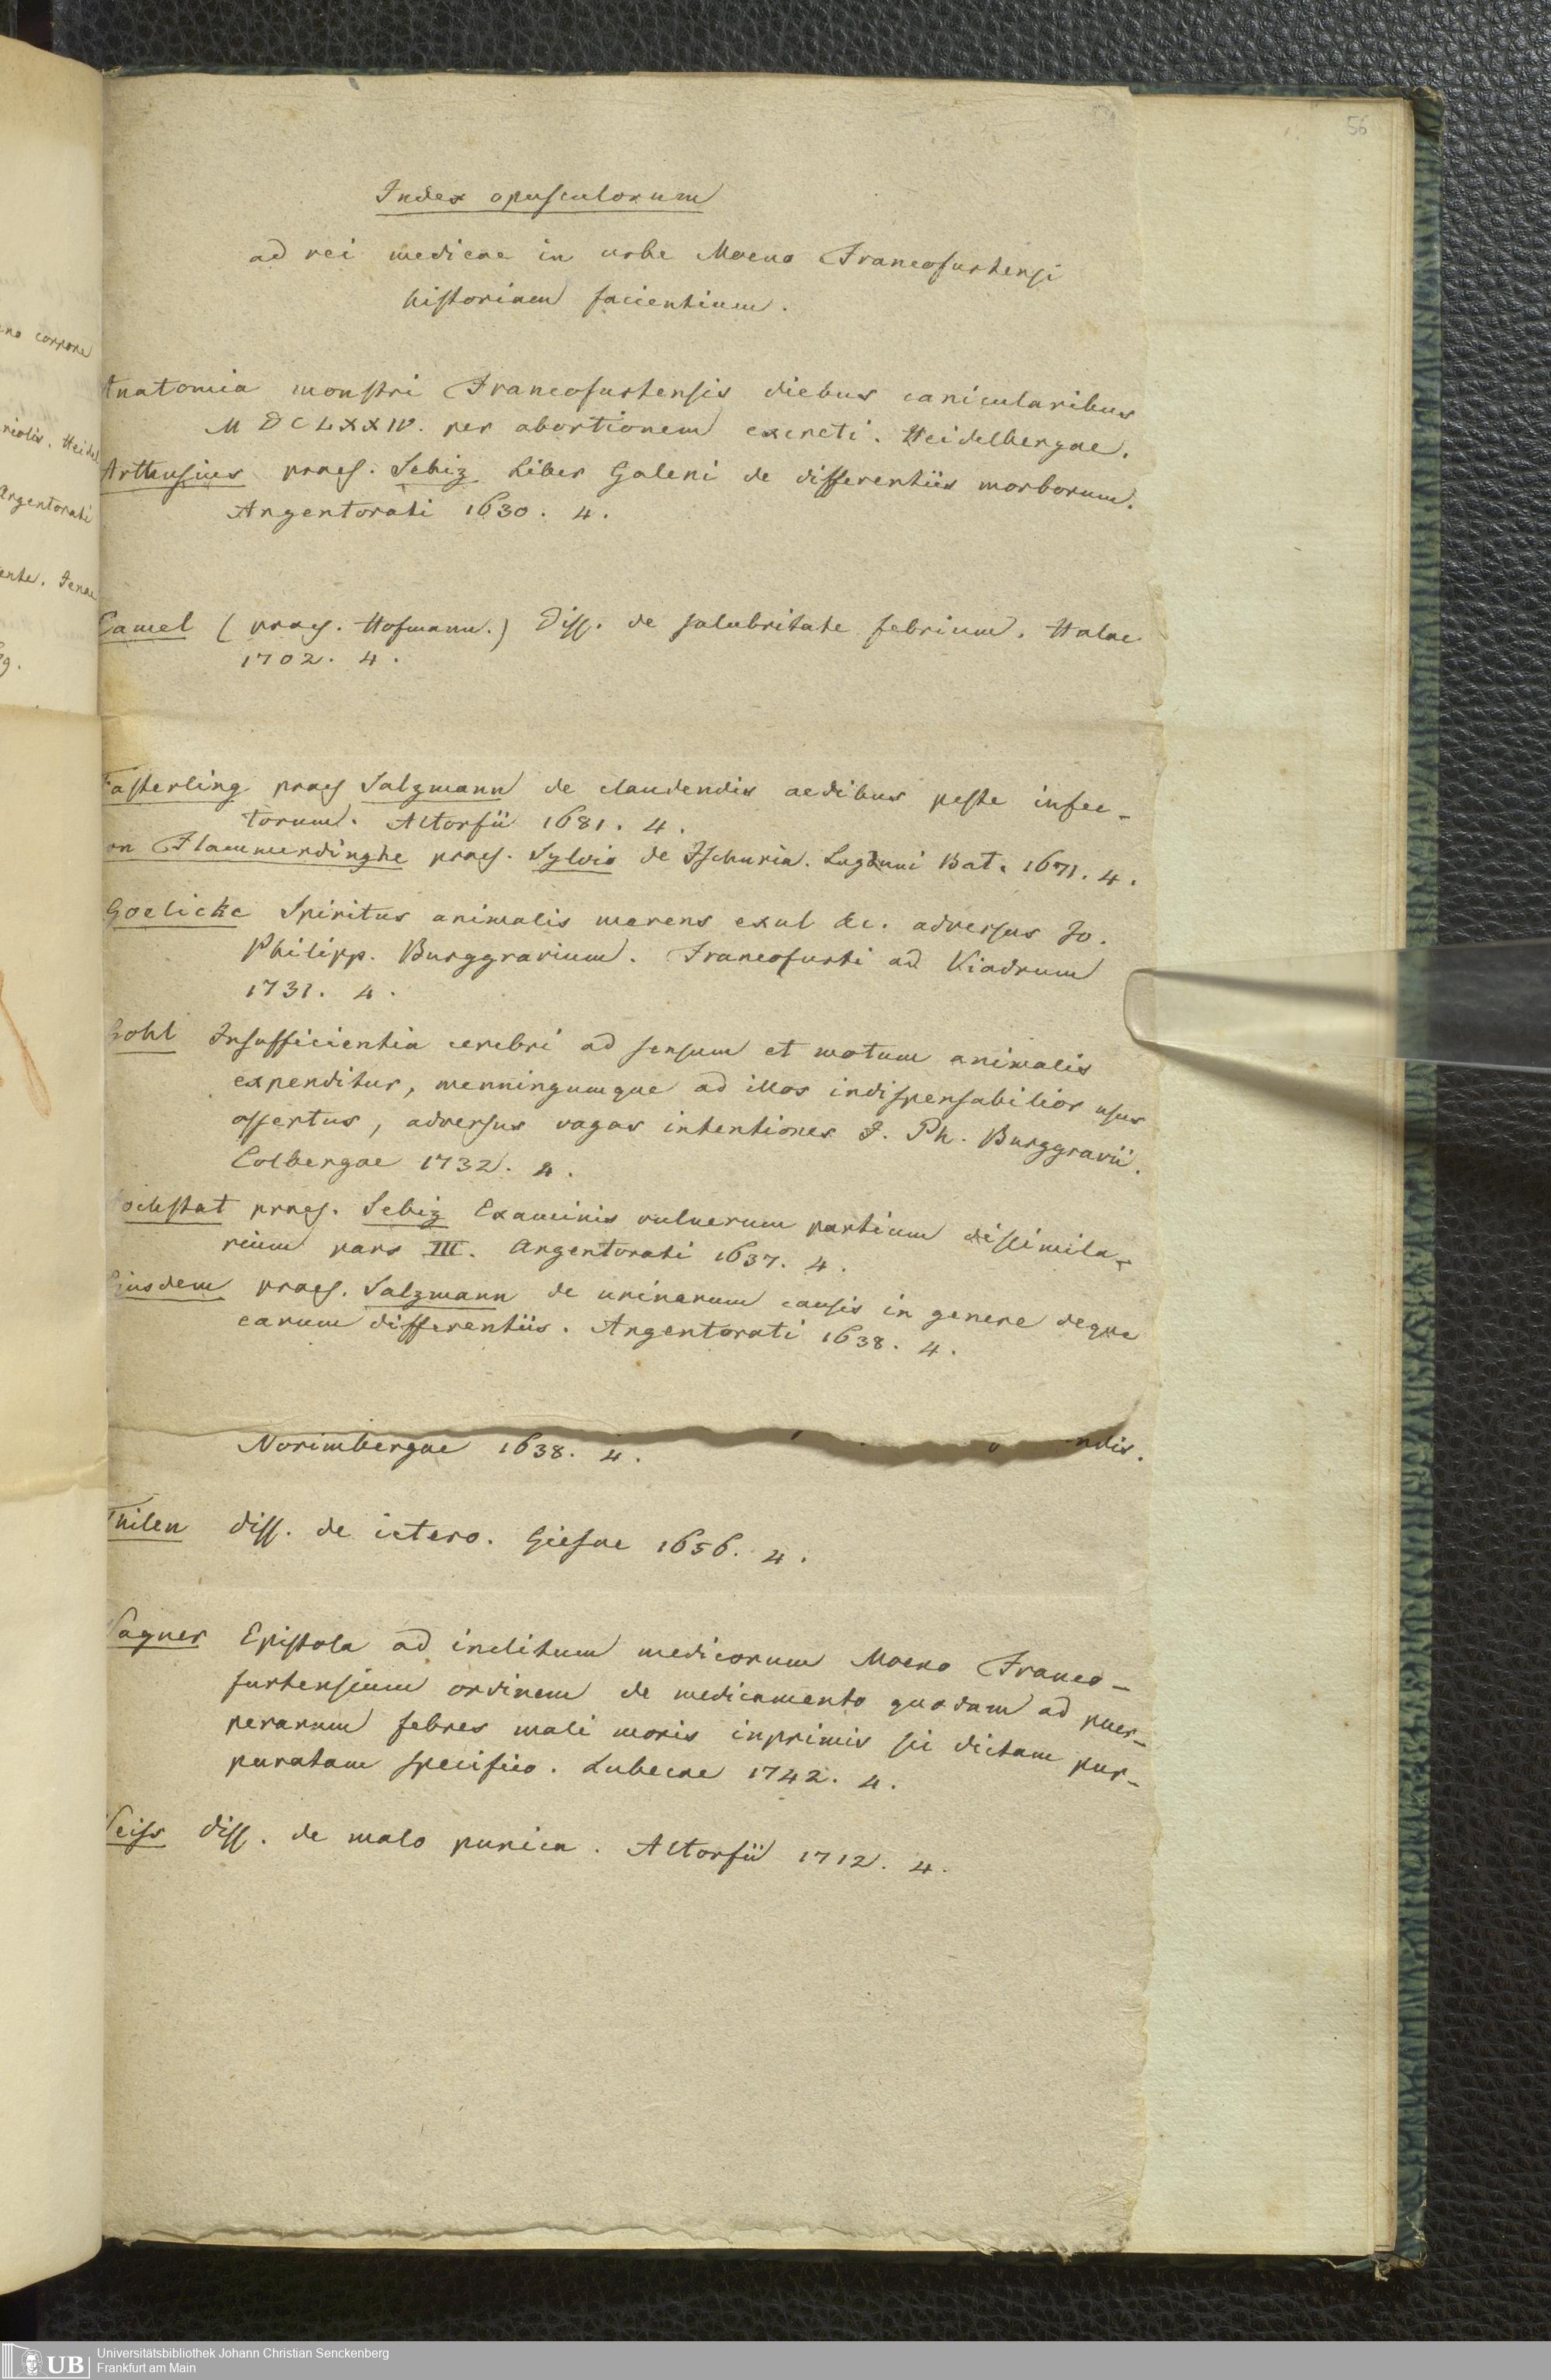 56
Index opusculorum
ad rei medicae in urbe Moeno Francofurtensi
historiam facientium.
Anatomia monstri Francofurtensis diebus canicularibus
MDCLXXIV. per abortionem excreti. Heidelbergae.
Arthusius praes. Sebiz Liber Galeni de differentiis morborum.
Argentorati 1630. 4.
Camel (praes. Hofmann.) Diss. de salubritate febrium. Halae
1702. 4.
Fasterling praes Salzmann de claudendis aedibus peste infec-
torum. Altorfii 1681. 4.
on Flammerdinghe praes. Sylvio de Ischuria. Lugduni Bat. 1671. 4.
Goelicke Spiritus animalis merens exul &c. adversus Jo.
Philipp. Burggravium. Francofurti ad Viadrum
1731. 4.
Gohl Insufficientia cerebri ad sensum et motum animalis
expenditur, menningumque ad illos indispensabilior usus
assertus, adversus vagas intentiones J. Ph. Burggravii.
Colbergae 1732. 4.
ochstat praes. Sebiz Examinis vulnerum partium dissimila-
rium pars III. Argentorati 1637. 4.
Ejusdem praes. Salzmann de urinarum causis in genere deque
earum differentiis. Argentorati 1638. 4.
ndis.
Norimbergae 1638. 4.
Thilen diss. de ictero. Giesae 1656. 4.
Wagner Epistola ad inclitum medicorum Moeno Franco-
furtensium ordinem de medicamento quodam ad puer-
perarum febres mali moris inprimis sic dictam pur-
puratam specifico. Lubecae 1742. 4.
Weiss diss. de malo punica. Altorfii 1712. 4.
eno corpore
riolis. Heidel
Argentorati
ente. Jenae
g.
UB
Universitätsbibliothek Johann Christian Senckenberg
Frankfurt am Main